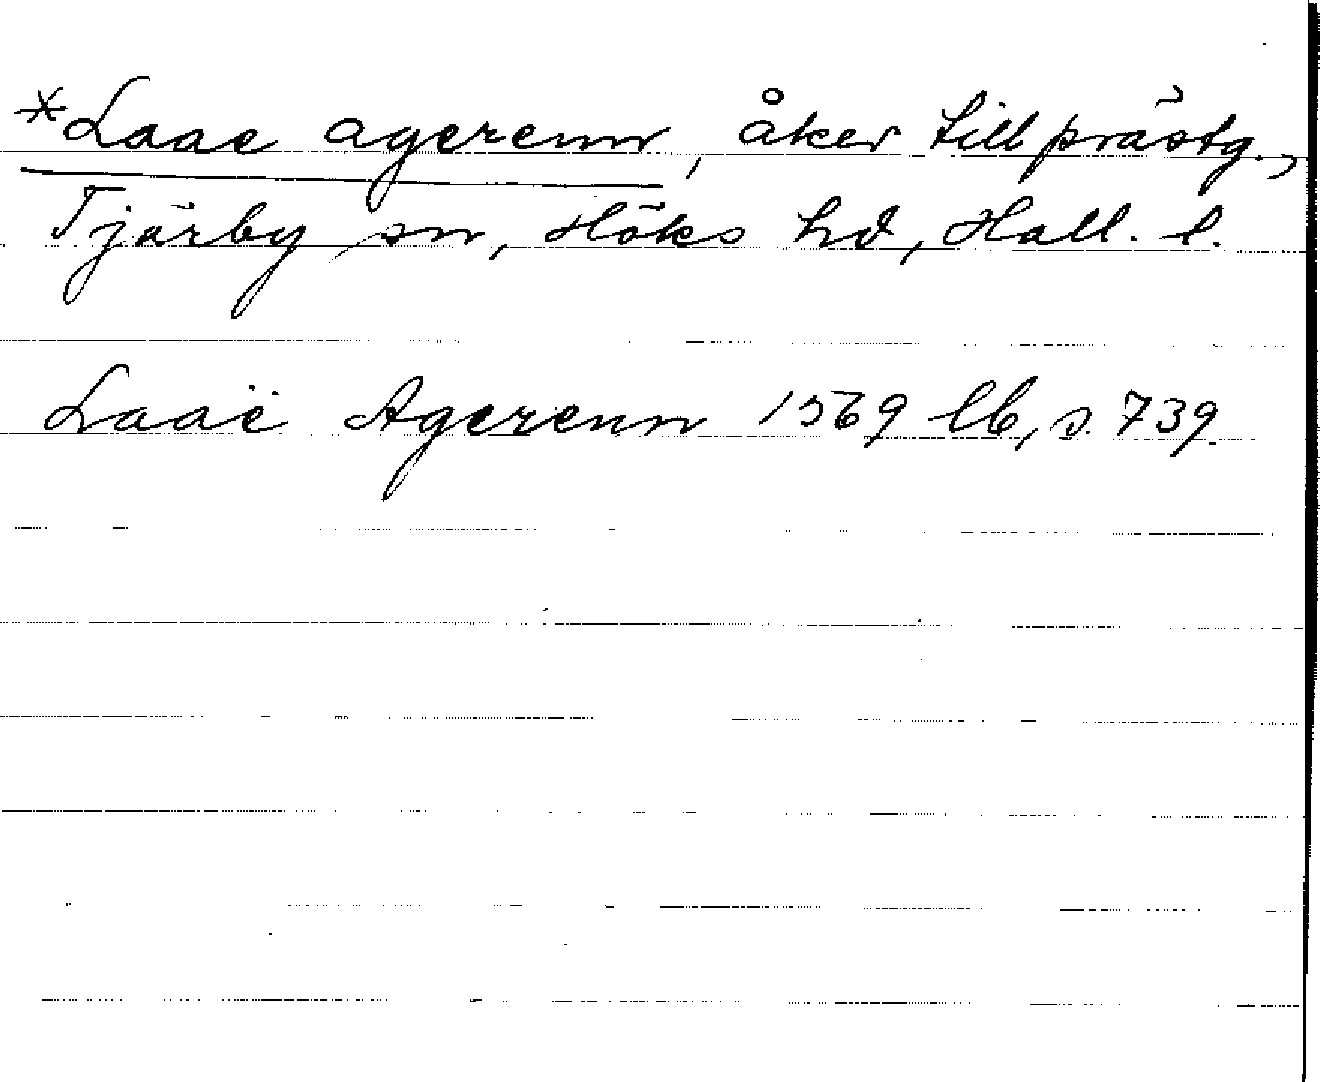 *Laae agerenn, åker till prästg.,
Tjärby sn, Höks hd, Hall. l.
Laaë Agerenn 1569 lb, s. 739